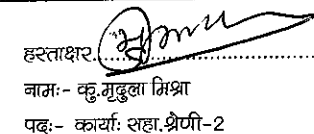 हस्ताक्षर..................
नामः- कु.मृदुला मिश्रा
पदः- कार्याः सहा.श्रेणी-2